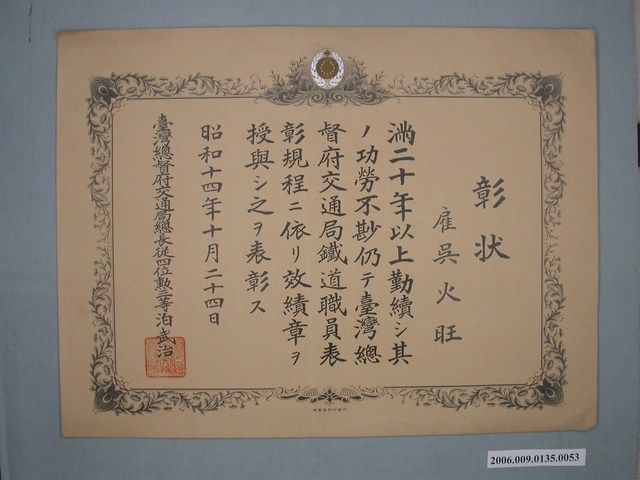 彰状
雇 吳火旺
滿二十年以上勤續シ其
ノ功勞不尠仍テ臺灣總
督府交通局鐵道職員表
彰規程ニ依リ效績章ヲ
授與シ之ヲ表彰ス
昭和十四年十月二十四日
臺灣總督府交通局總長從四位勲三等泊武治
2006.009.0135.0053